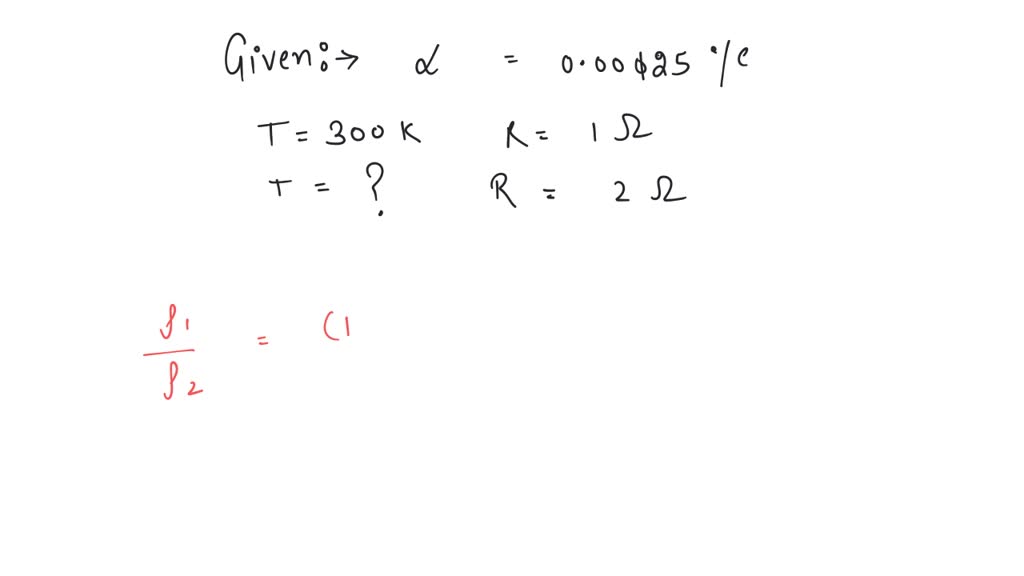 Given:→ α = 0.00125 °/c
T = 300 K R = 1 Ω
T = ? R = 2 Ω
ρ1 / ρ2 = (1